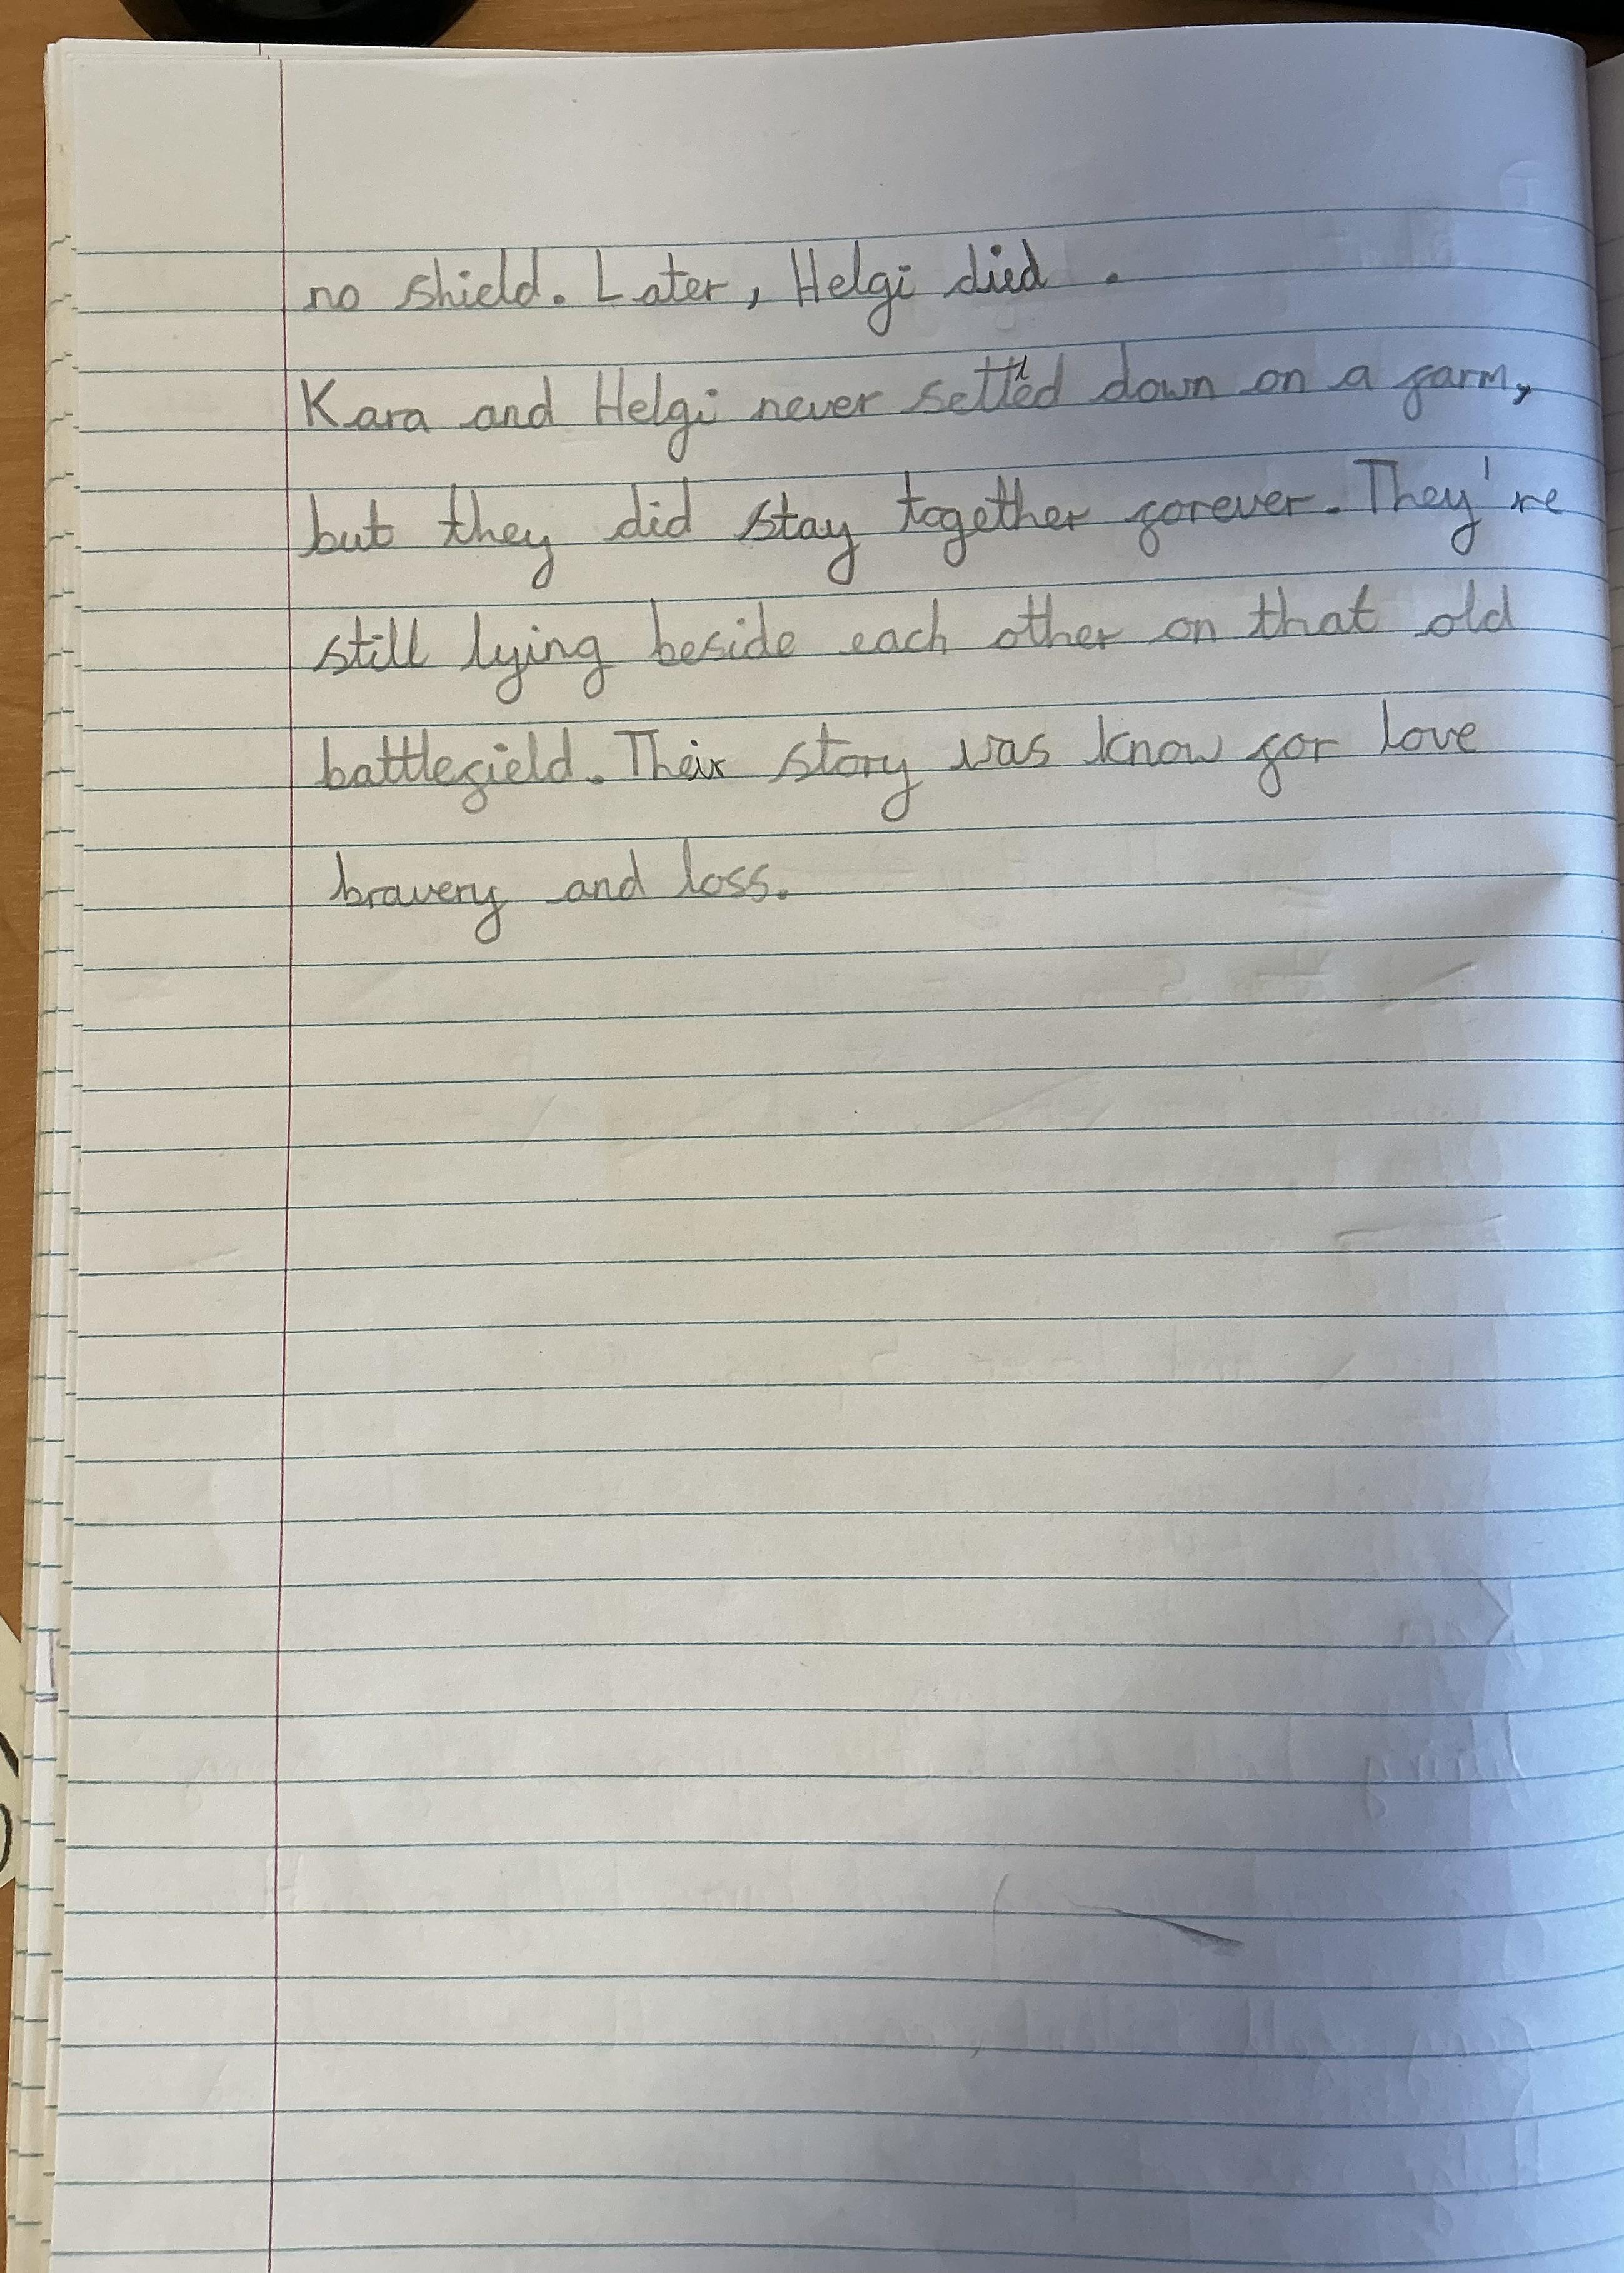 no shield. Later, Helgi died .
Kara and Helgi never settled down on a farm,
but they did stay together forever. They're
still lying beside each other on that old
battlefield. Their story was know for love
bravery and loss.